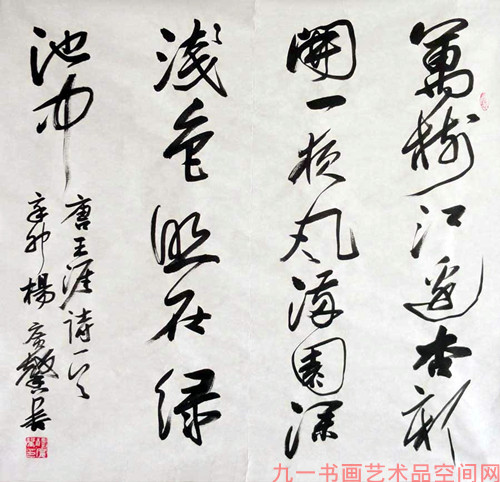 萬樹江邊杏新
開一夜风滿園深
淺色照在绿
池中
唐王涯詩一首
辛卯楊书
九一书画艺术品空间网